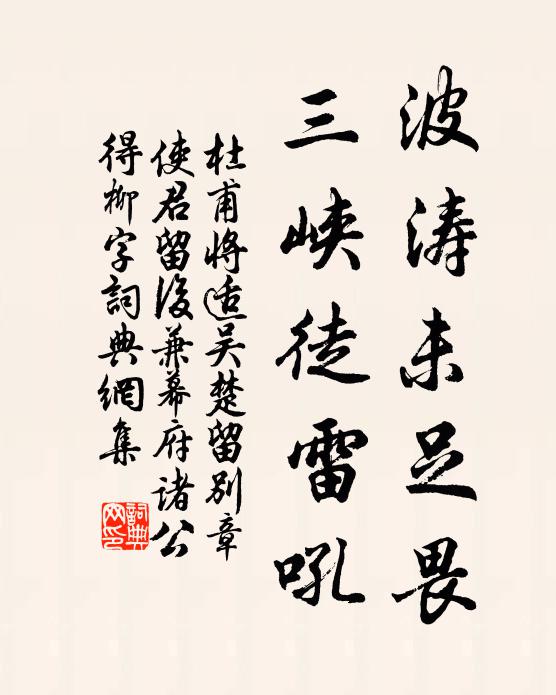 波涛未足畏
三峡徒雷吼
杜甫将适吴楚留别章
使君留後兼幕府诸公
得柳字詞典網集
詞典网印